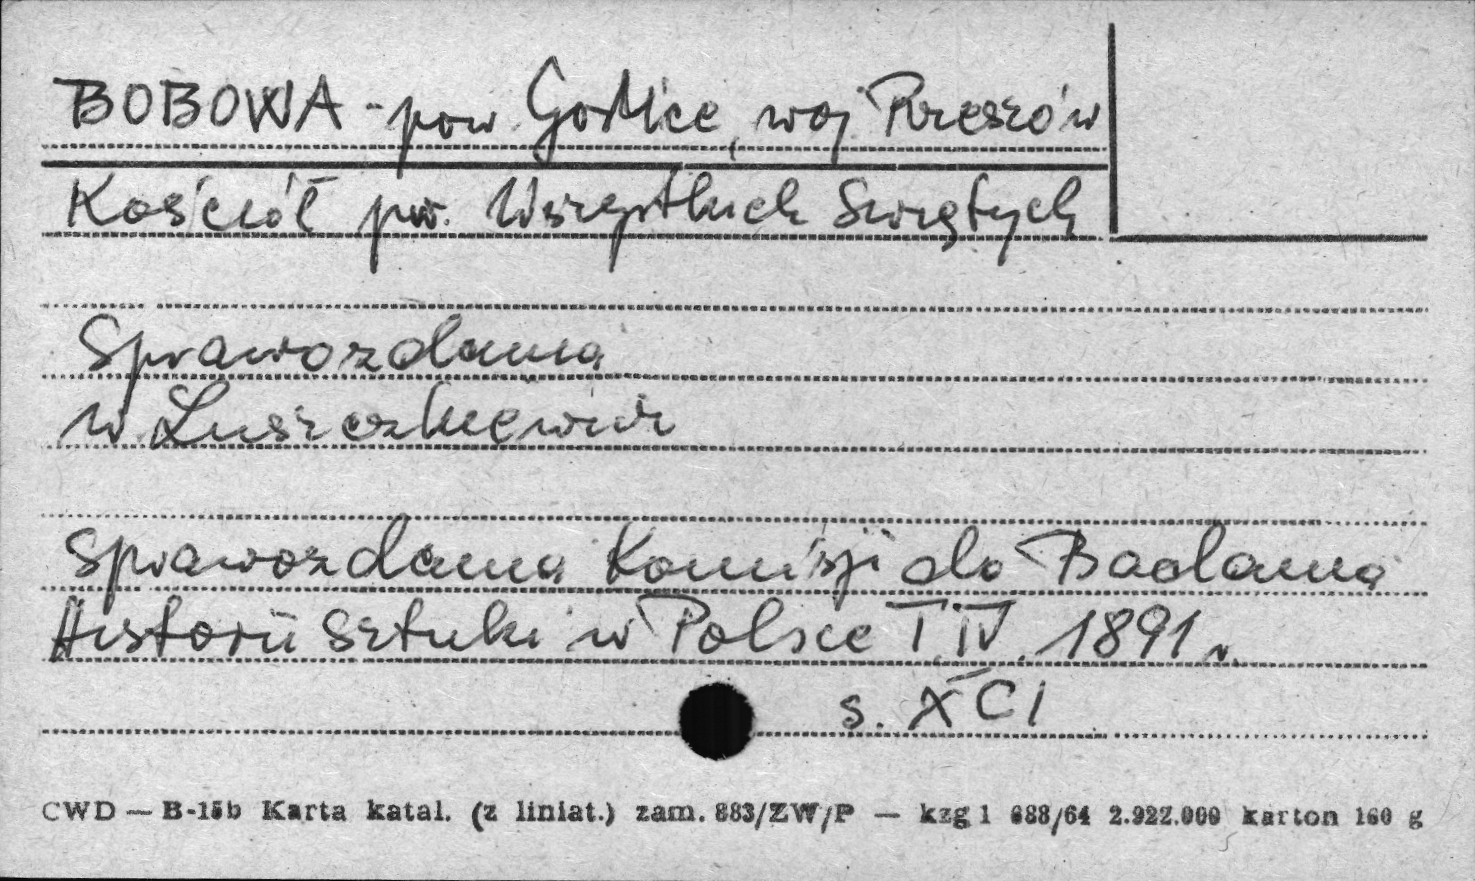 BOBOWA - pow. Gorlice, woj. Rzeszów
Kościół pw. Wszystkich Swiętych
Sprawozdania
W Łuszczkiewicz
Sprawozdania Komisji do Badania
Historii Sztuki w Polsce T. IV. 1891 r.
s. XCI
CWD — B-15b Karta katal. (z liniat.) zam. 883/ZW/P — kzg 1 088/64 2.922.000 karton 160 g